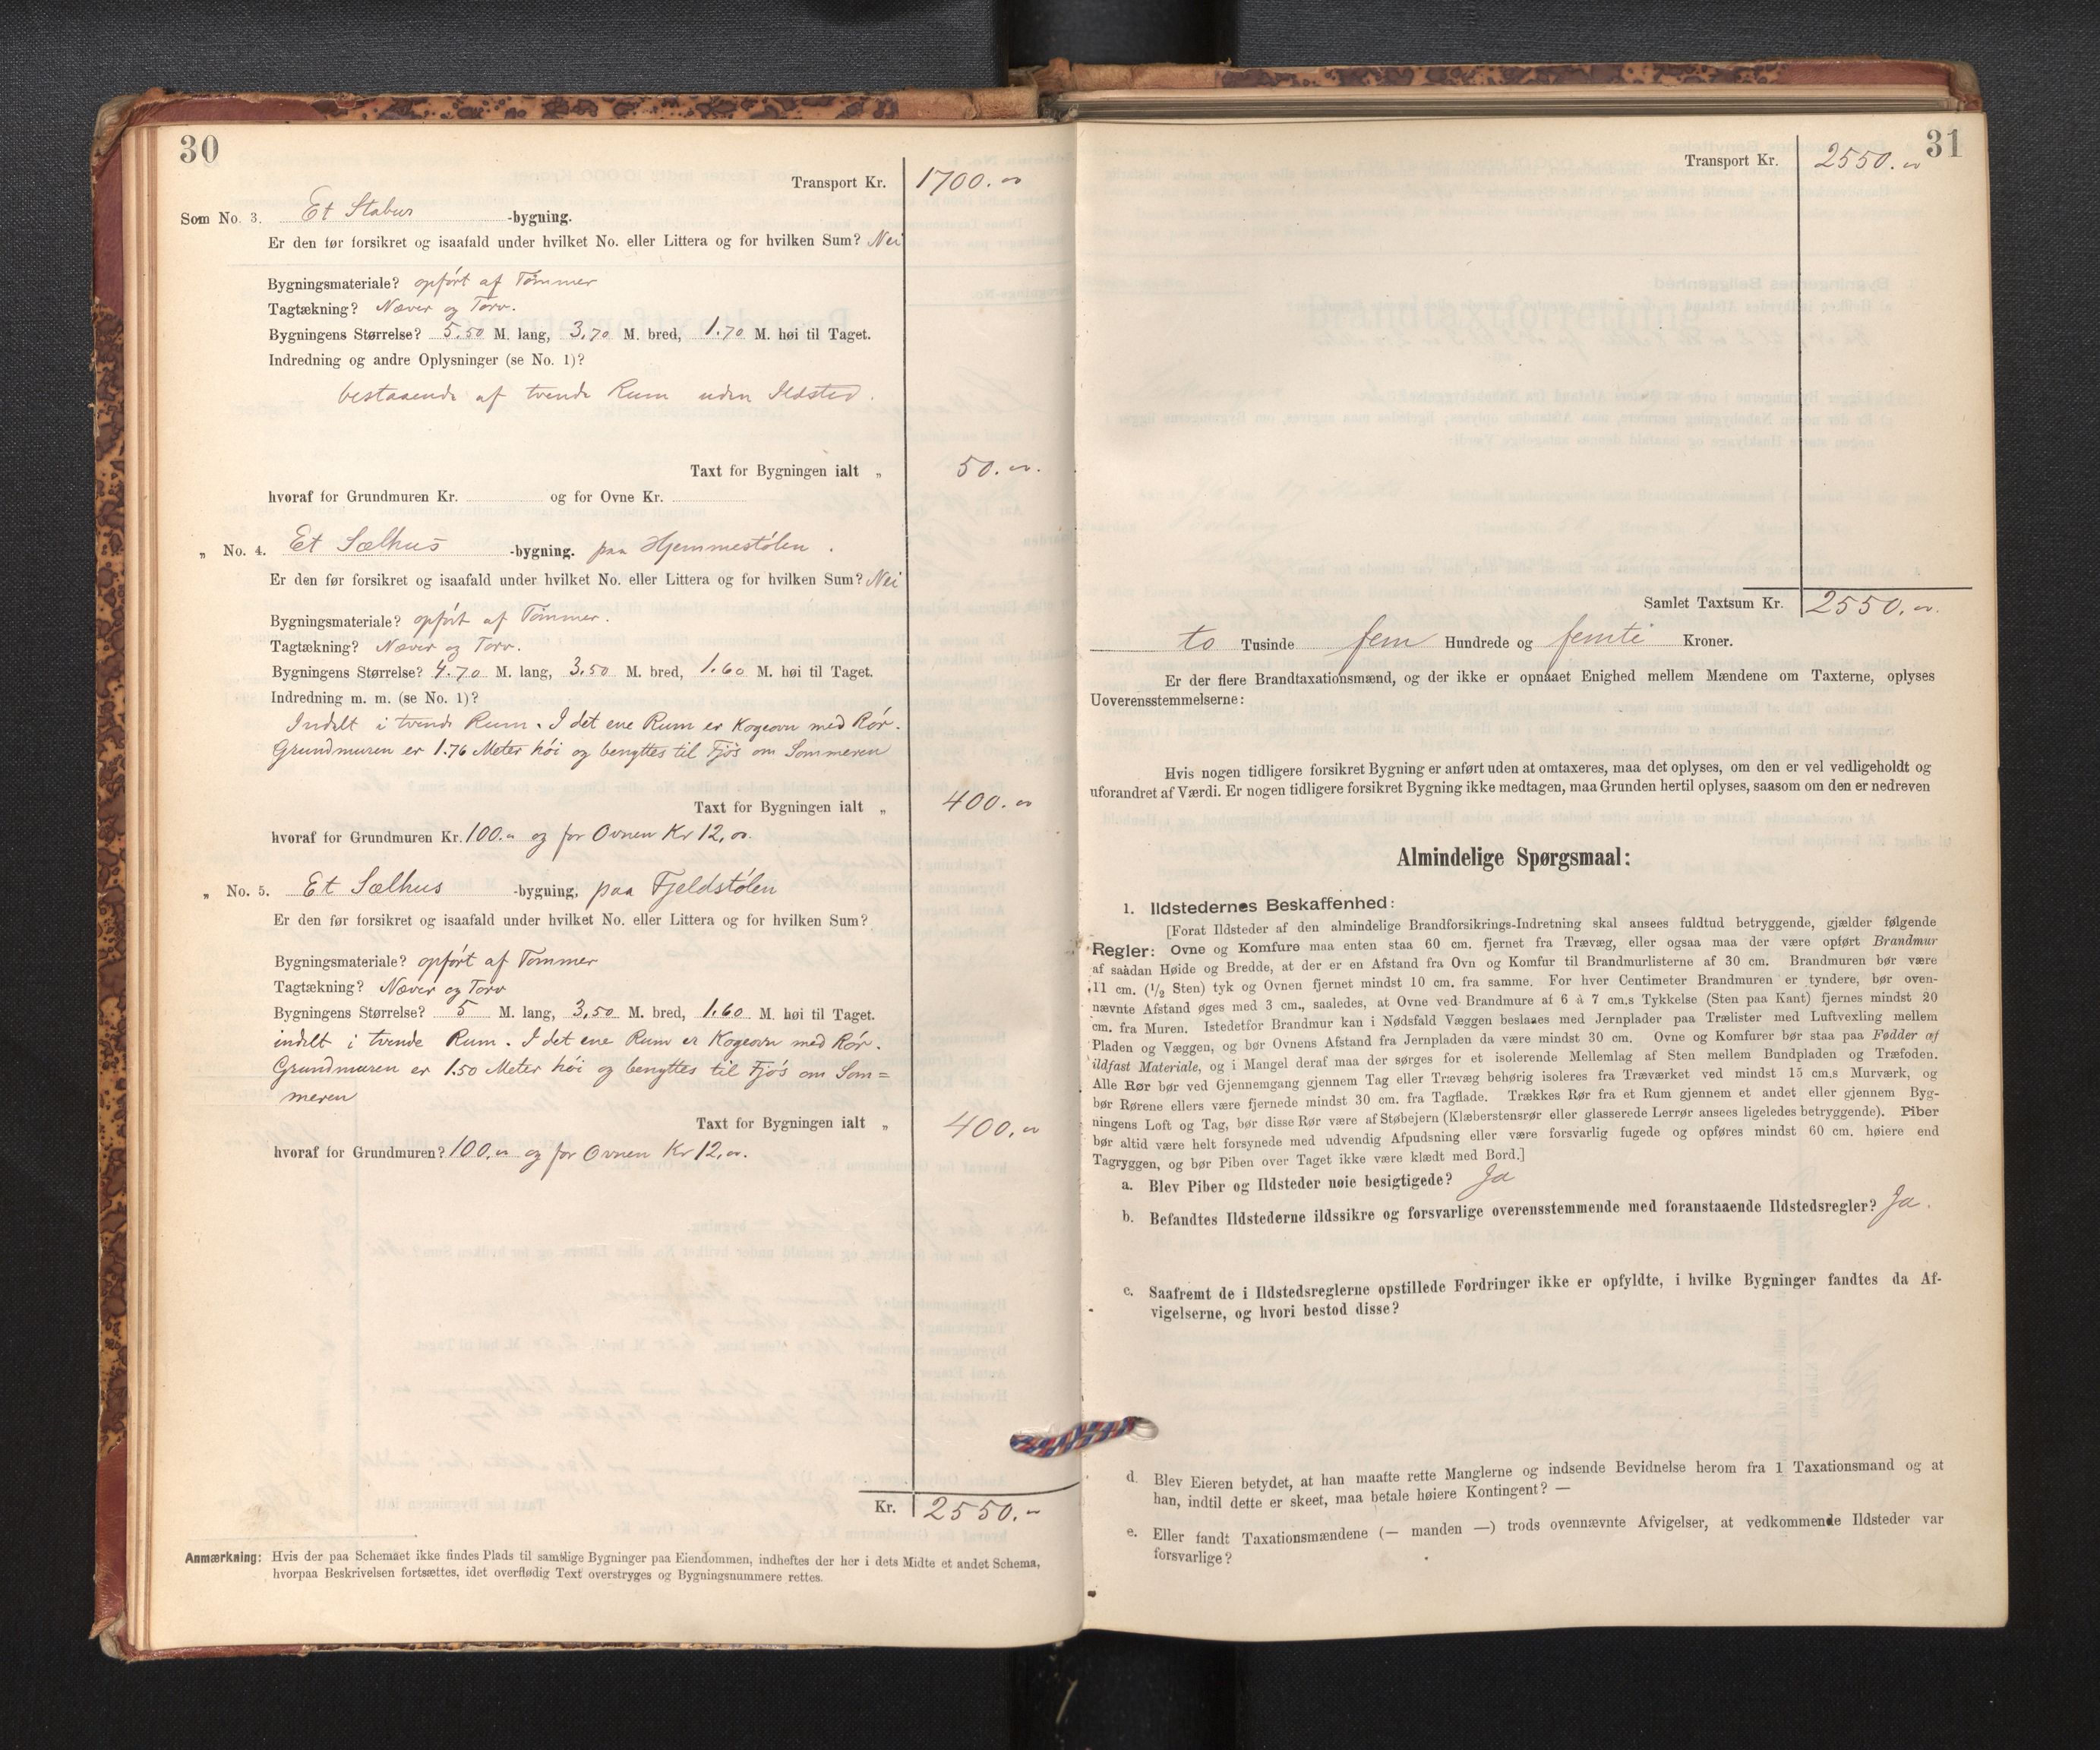 30
Transport Kr. 1700.
Som No. 3. Et Stabur -bygning.
Er den før forsikret og isaafald under hvilket No. eller Littera og for hvilken Sum? Nei
Bygningsmateriale? opført af Tømmer
Tagtækning? Næver og Torv.
Bygningens Størrelse? 5.50 M. lang, 3,70 M. bred, 1.70 M. høi til Taget.
Indredning og andre Oplysninger (se No. 1)?
bestaaende af tvende Rum uden Ildsted.
Taxt for Bygningen ialt „ 50.
hvoraf for Grundmuren Kr. og for Ovne Kr.
„ No. 4. Et Sælhus -bygning. paa Hjemmestølen.
Er den før forsikret og isaafald under hvilket No. eller Littera og for hvilken Sum? Nei
Bygningsmateriale? opført af Tømmer.
Tagtækning? Næver og Torv.
Bygningens Størrelse? 4.70 M. lang, 3,50 M. bred, 1.60 M. høi til Taget.
Indredning m. m. (se No. 1)?
Indelt i tvende Rum. I det ene Rum er Kogeovn med Rør.
Grundmuren er 1.76 Meter høi og benyttes til Fjøs om Sommeren
Taxt for Bygningen ialt „ 400.
hvoraf for Grundmuren Kr. 100. og for Ovnen Kr 12,
„ No. 5. Et Sælhus -bygning, paa Fjeldstølen
Er den før forsikret og isaafald under hvilket No. eller Littera og for hvilken Sum?
Bygningsmateriale? opført af Tømmer
Tagtækning? Næver og Torv
Bygningens Størrelse? 5 M. lang, 3,50 M. bred, 1.60 M. høi til Taget.
indelt i tvende Rum. I det ene Rum er Kogeovn med Rør.
Grundmuren er 1.50 Meter høi og benyttes til Fjøs om Som=
meren
Taxt for Bygningen ialt „ 400,
hvoraf for Grundmuren? 100, og for Ovnen Kr 12,
Kr. 2550.
Anmærkning: Hvis der paa Schemaet ikke findes Plads til samtlige Bygninger paa Eiendommen, indheftes der her i dets Midte et andet Schema,
hvorpaa Beskrivelsen fortsættes, idet overflødig Text overstryges og Bygningsnummere rettes.
31
Transport Kr. 2550.
Samlet Taxtsum Kr. 2550.
to Tusinde fem Hundrede og femti Kroner.
Er der flere Brandtaxationsmænd, og der ikke er opnaaet Enighed mellem Mændene om Taxterne, oplyses
Uoverensstemmelserne:
Hvis nogen tidligere forsikret Bygning er anført uden at omtaxeres, maa det oplyses, om den er vel vedligeholdt og
uforandret af Værdi. Er nogen tidligere forsikret Bygning ikke medtagen, maa Grunden hertil oplyses, saasom om den er nedreven
Almindelige Spørgsmaal:
1. Ildstedernes Beskaffenhed:
[Forat Ildsteder af den almindelige Brandforsikrings-Indretning skal ansees fuldtud betryggende, gjælder følgende
Regler: Ovne og Komfure maa enten staa 60 cm. fjernet fra Trævæg, eller ogsaa maa der være opført Brandmur
af saadan Høide og Bredde, at der er en Afstand fra Ovn og Komfur til Brandmurlisterne af 30 cm. Brandmuren bør være
11 cm. (1/2 Sten) tyk og Ovnen fjernet mindst 10 cm. fra samme. For hver Centimeter Brandmuren er tyndere, bør oven-
nævnte Afstand øges med 3 cm., saaledes, at Ovne ved Brandmure af 6 à 7 cm.s Tykkelse (Sten paa Kant) fjernes mindst 20
cm. fra Muren. Istedetfor Brandmur kan i Nødsfald Væggen beslaaes med Jernplader paa Trælister med Luftvexling mellem
Pladen og Væggen, og bør Ovnens Afstand fra Jernpladen da være mindst 30 cm. Ovne og Komfurer bør staa paa Fødder af
ildfast Materiale, og i Mangel deraf maa der sørges for et isolerende Mellemlag af Sten mellem Bundpladen og Træfoden.
Alle Rør bør ved Gjennemgang gjennem Tag eller Trævæg behørig isoleres fra Træværket ved mindst 15 cm.s Murværk, og
bør Rørene ellers være fjernede mindst 30 cm. fra Tagflade. Trækkes Rør fra et Rum gjennem et andet eller gjennem Byg-
ningens Loft og Tag, bør disse Rør være af Støbejern (Klæberstensrør eller glasserede Lerrør ansees ligeledes betryggende). Piber
bør altid være helt forsynede med udvendig Afpudsning eller være forsvarlig fugede og opføres mindst 60 cm. høiere end
Tagryggen, og bør Piben over Taget ikke være klædt med Bord.]
a. Blev Piber og Ildsteder nøie besigtigede? Ja
b. Befandtes Ildstederne ildssikre og forsvarlige overensstemmende med foranstaaende Ildstedsregler? Ja.
c. Saafremt de i Ildstedsreglerne opstillede Fordringer ikke er opfyldte, i hvilke Bygninger fandtes da Af-
vigelserne, og hvori bestod disse?
d. Blev Eieren betydet, at han maatte rette Manglerne og indsende Bevidnelse herom fra 1 Taxationsmand og at
han, indtil dette er skeet, maa betale høiere Kontingent? —
e. Eller fandt Taxationsmændene (— manden —) trods ovennævnte Afvigelser, at vedkommende Ildsteder var
forsvarlige?